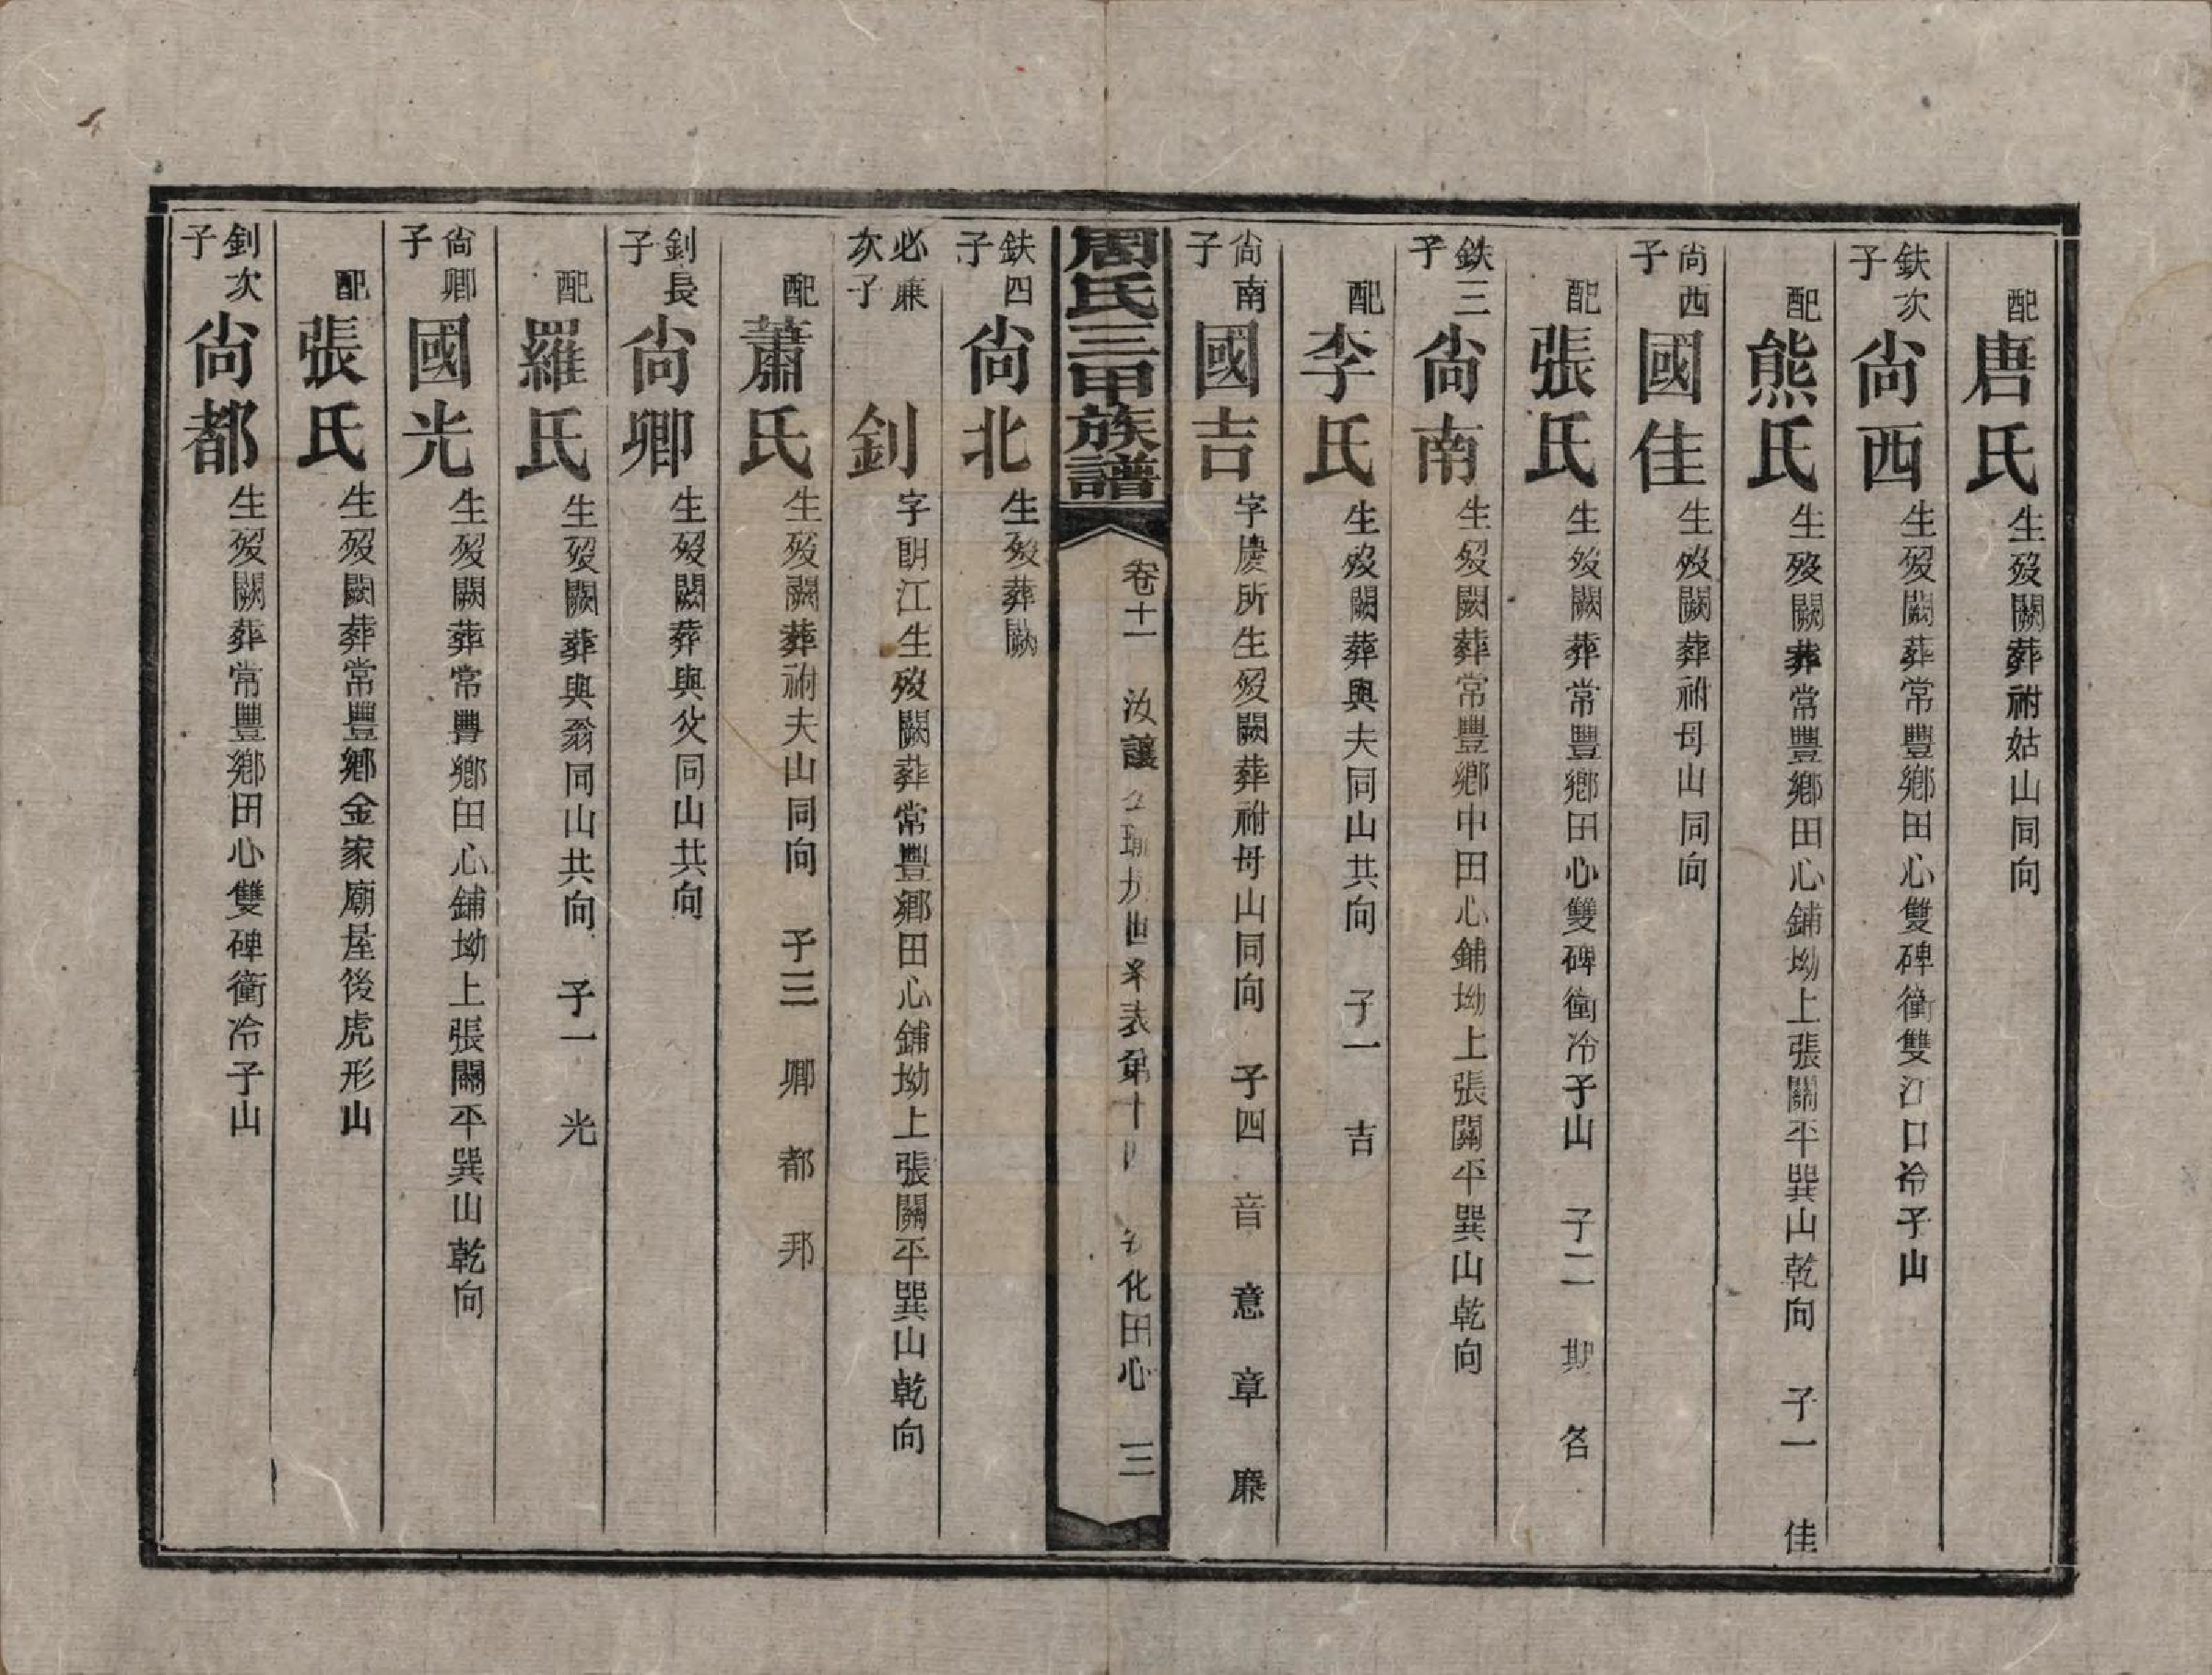 配唐氏生歿闕葬祔姑山同向
鉄次子尙西生歿闕葬常豐鄉田心雙碑衝雙江口冷子山
配熊氏生歿闕葬常豐鄉田心鋪坳上張關平巽山乾向 子一 佳
尙西子國佳生歿闕葬祔母山同向
配張氏生歿闕葬常豐鄉田心雙碑衝冷子山 子二 期 名
鉄三子尙南生歿闕葬常豐鄉中田心鋪坳上張關平巽山乾向
配李氏生歿闕葬與夫同山共向 子一 吉
尙南子國吉字慶所生歿闕葬祔母山同向 子四 音 意 章 廉
周氏三甲族譜 卷十一 汝讓 房世系表第十 化田心 三
鉄四子尙北生歿葬闕
必廉次子釗字朗江生歿闕葬常豐鄉田心鋪坳上張關平巽山乾向
配蕭氏生歿闕葬祔夫山同向 子三 卿 都 邦
釗長子尙卿生歿闕葬與父同山共向
配羅氏生歿闕葬與翁同山共向 子一 光
尙卿子國光生歿闕葬常豐鄉田心鋪坳上張關平巽山乾向
配張氏生歿闕葬常豐鄉金家廟屋後虎形山
釗次子尙都生歿闕葬常豐鄉田心雙碑衝冷子山